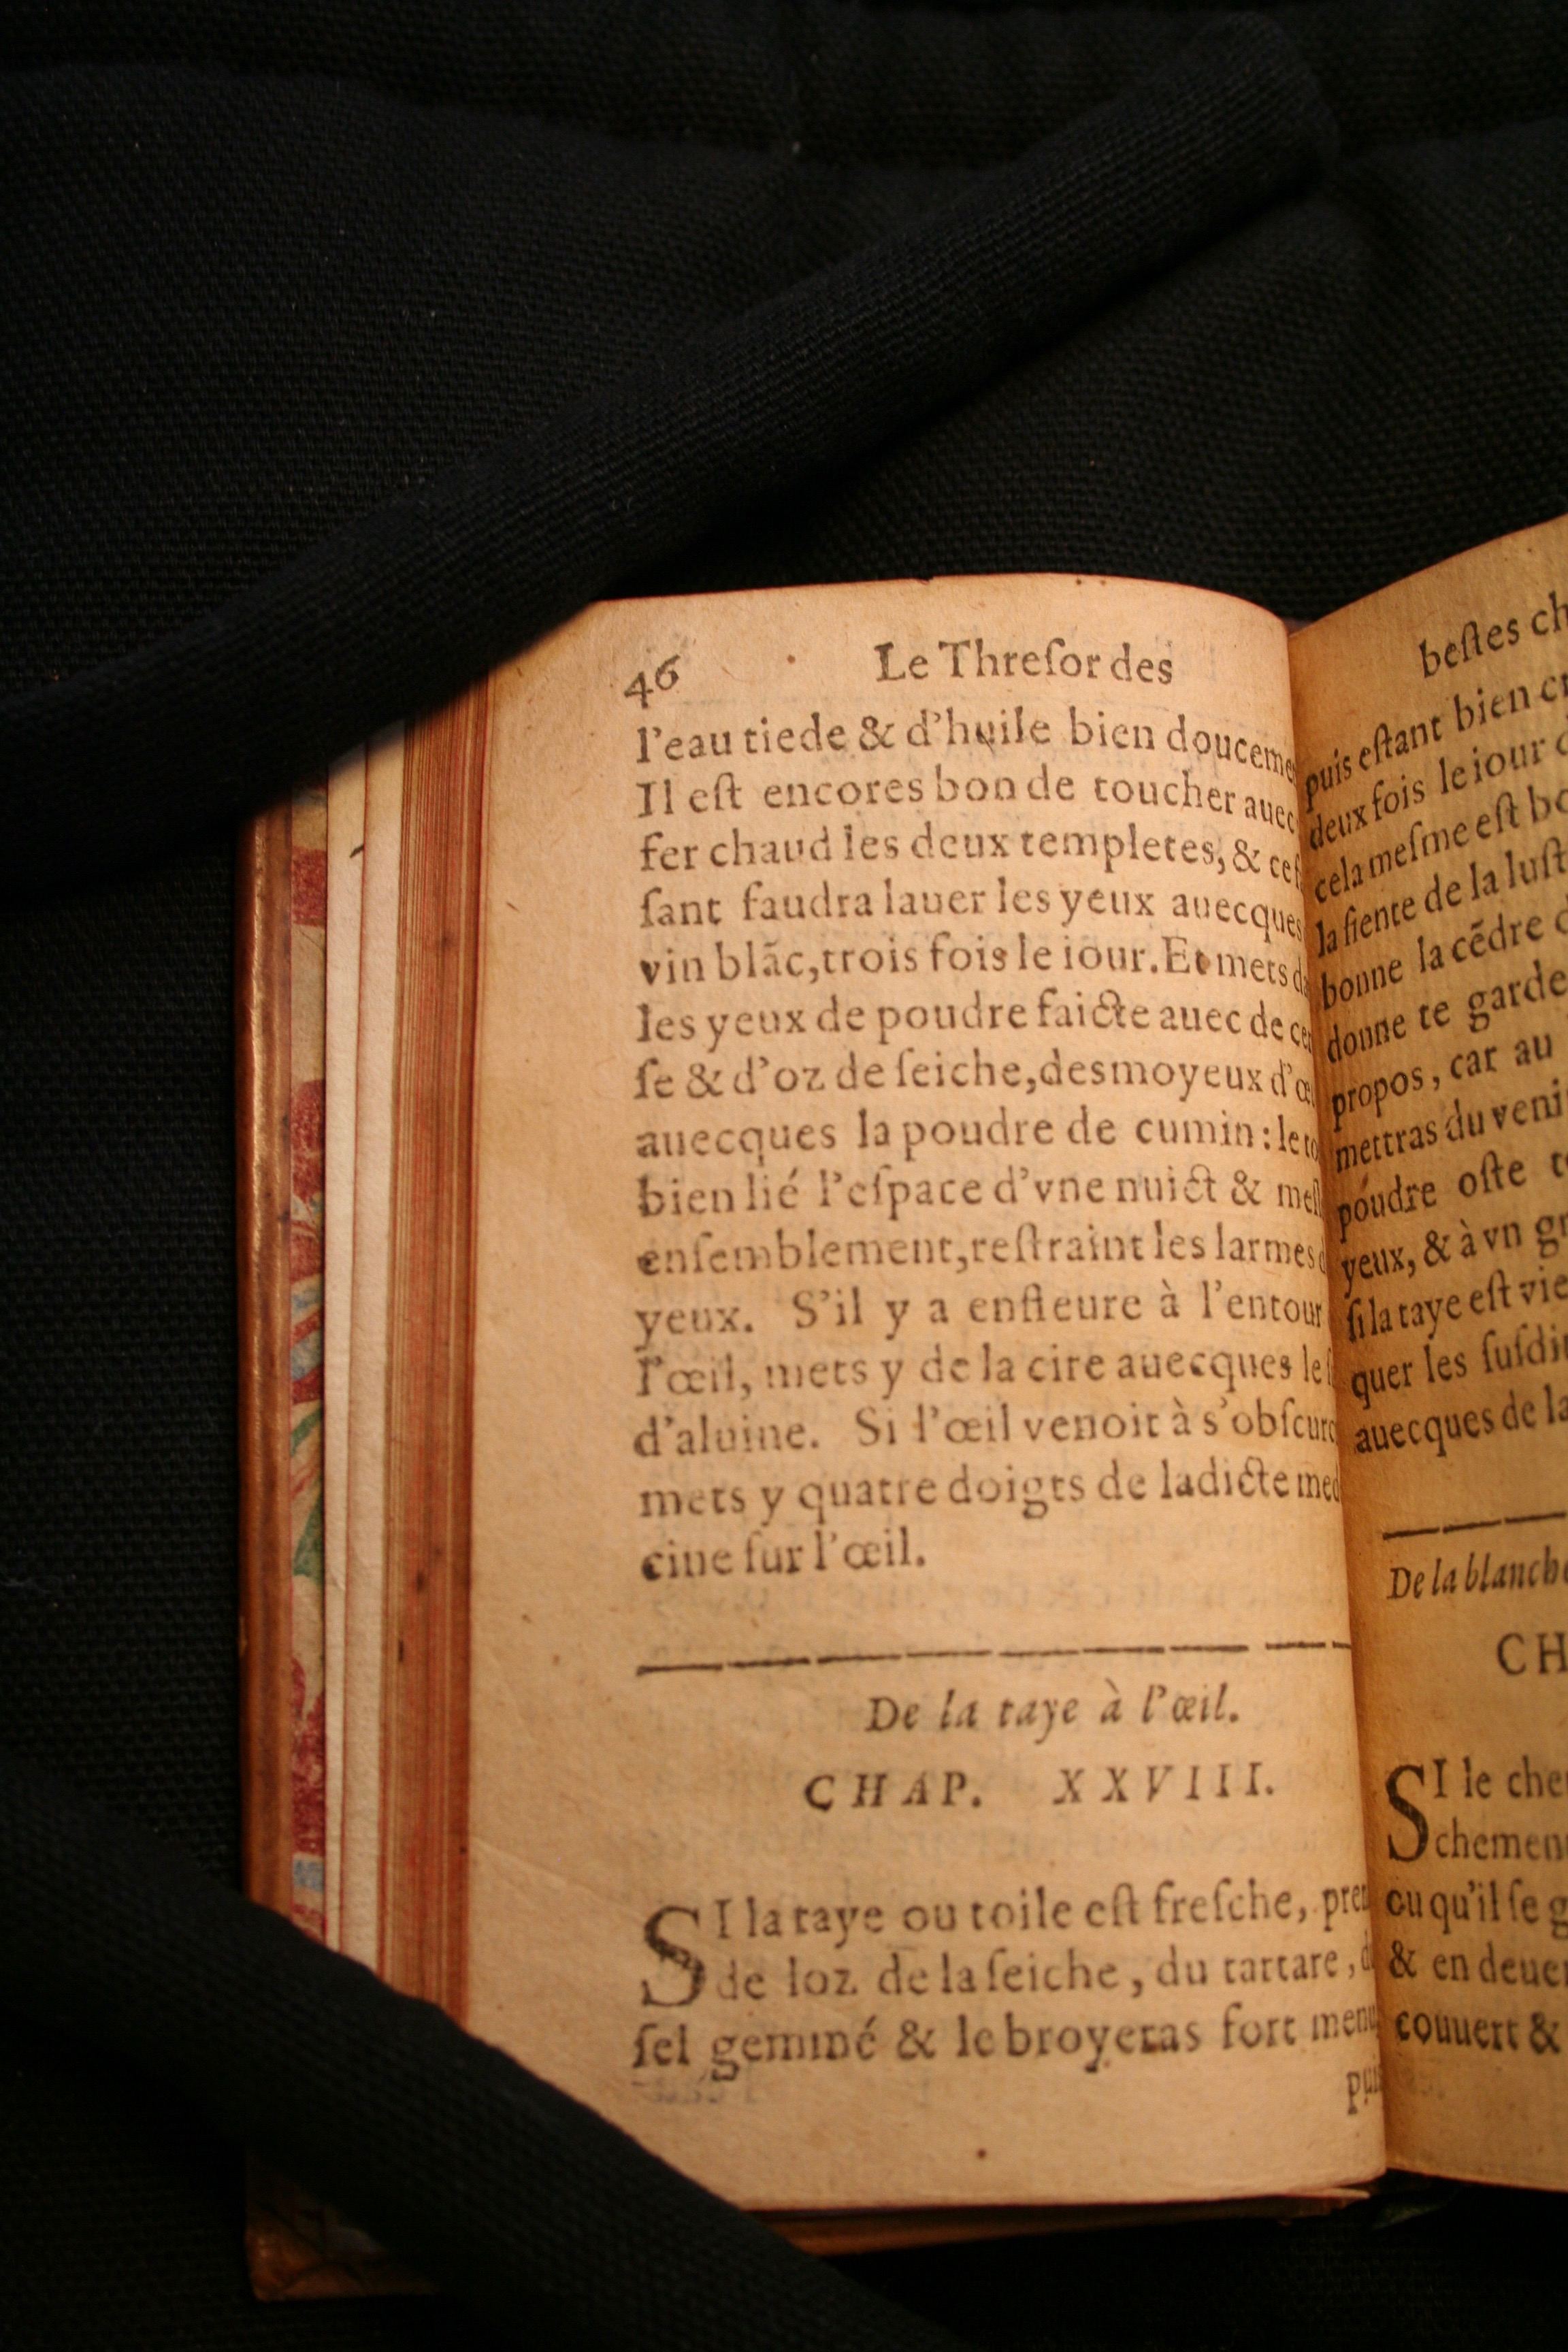 46 Le Threſor des
l'eau tiede & d'huile bien douceme
Il eſt encores bon de toucher auec
fer chaud les deux templetes, & ceſ
ſant faudra lauer les yeux auecques
vin blãc, trois fois le iour. Et mets
les yeux de poudre faicte auec de
ſe & d'oz de ſeiche, des moyeux
auecques la poudre de cumin: le
bien lié l'eſpace d'vne nuict &
enſemblement, reſtraint les larmes
yeux. S'il y a enfleure à l'entour
l'œil, mets y de la cire auecques le
d'aluine. Si l'œil venoit à s'obſcurc
mets y quatre doigts de ladicte med
cine ſur l'œil.
De la taye à l'œil.
CHAP. XXVIII.
SI la taye ou toile eſt freſche, pren
de loz de la ſeiche, du tartare,
ſel gemmé & le broyeras fort menu
pui
beſtes ch
puis eſtant bien
deux fois le iour
cela meſme eſt bo
la fiente de la luſt
bonne la cẽdre
donne te garde
propos, car au
mettras du veni
poudre oſte
yeux, & à vn gr
ſi la taye eſt vie
quer les ſuſdit
auecques de la
De la blanche
CH
SI le che
chement
ou qu'il ſe g
& en deue
couuert &